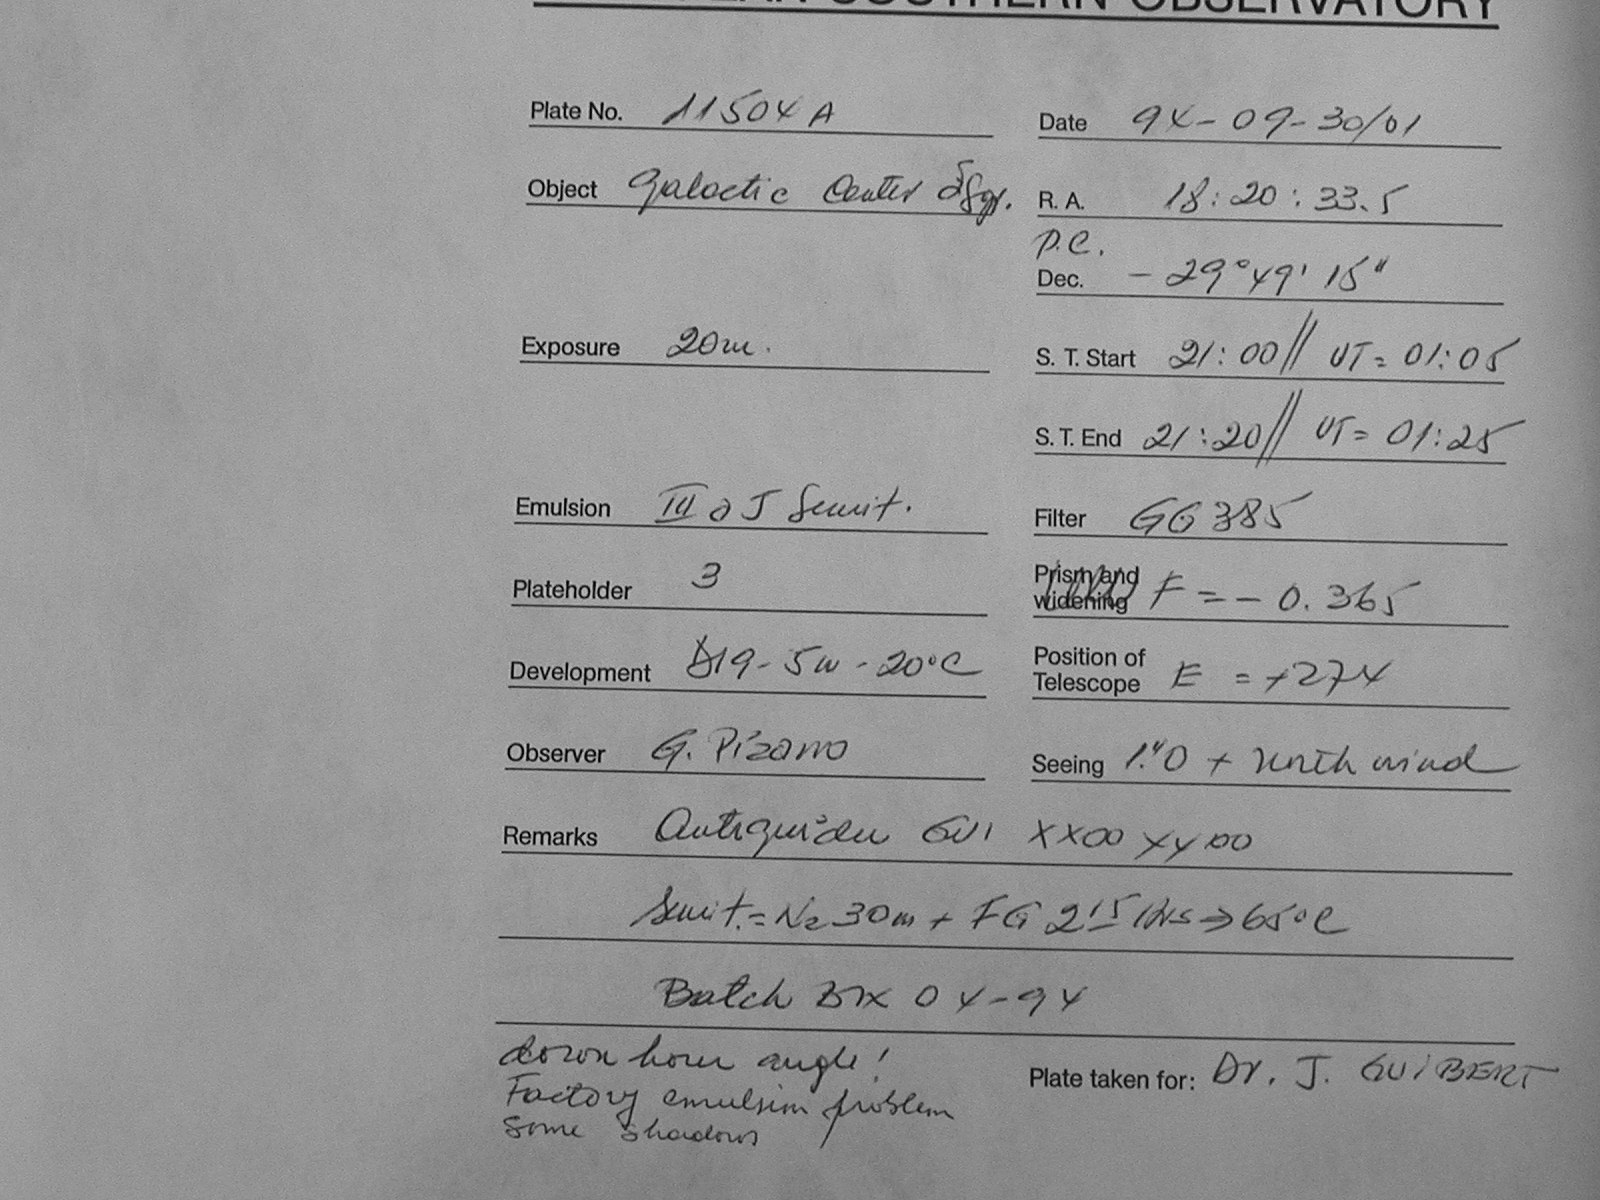 SOUTHERN OBSERVATORY
Plate No. 11504 A
Date 94-09-30/01
Object Galactic Center δ Sgr.
R. A. 18:20:33.5
P.C.
Dec. - 29° 49' 15"
Exposure 20m.
S. T. Start 21:00// UT= 01:05
S. T. End 21:20// UT= 01:25
Emulsion III a J Sensit.
Filter GG 385
Plateholder 3
Prism and widening F = - 0.365
Development D19-5m-20°C
Position of Telescope E = +274
Observer G. Pizarro
Seeing 1."0 + north wind
Remarks GUI XX00 YY00
Sensit.= N2 30m + FG 215 Hrs → 65°C
Batch 04-94
down hour angle!
Factory emulsion problem
some shadows
Plate taken for: Dr. J. GUIBERT